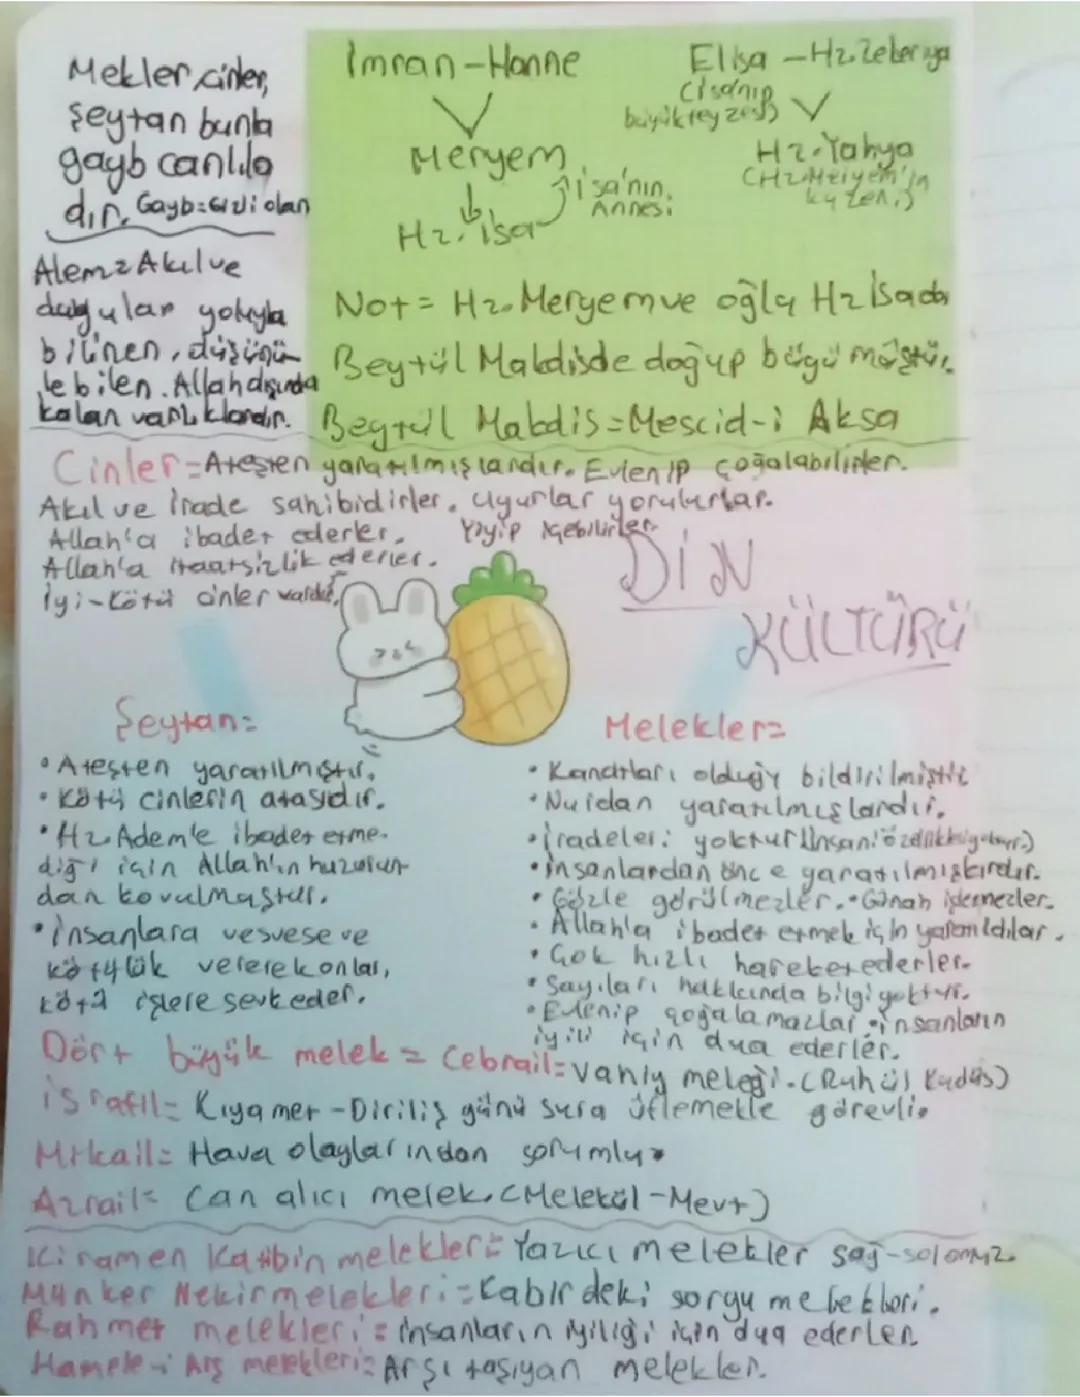 Mekler, cinler,
şeytan bunla
gayb canlıla
dır. Gayb=Gizli olan
Alem= Akıl ve
duygular yoluyla
bilinen, düşünü
lebilen. Allah dışında
kalan varlıklardır.
İmran-Hanne
Meryem
İsa'nın
Annesi
Hz. İsa
Elisa - Hz. Zekeriya
(İsa'nın
büyük teyzesi)
Hz. Yahya
(Hz. Meryem'in
kuzeni)
Not= Hz. Meryem ve oğlu Hz İsada
Beytül Makdisde doğup büyümüştür.
Beytül Makdis=Mescid-i Aksa
Cinler=Ateşten yaratılmışlardır. Evlenip çoğalabilirler.
Akıl ve İrade sahibidirler. Uyurlar yorulurlar.
Allah'a ibadet ederler. Yiyip içebilirler.
Allah'a itaatsizlik ederler.
İyi-Kötü cinler vardır.
DİN
KÜLTÜRÜ
Şeytan=
• Ateşten yaratılmıştır.
• Kötü cinlerin atasıdır.
• Hz. Adem'e ibadet etme-
diği için Allah'ın huzurun-
dan kovulmuştur.
• İnsanlara vesvese ve
kötülük vererek onları,
kötü işlere sevk eder.
Melekler=
• Kanatları olduğu bildirilmiştir
• Nurdan yaratılmışlardır.
• İradeleri yoktur (İnsani özellikleri yoktur.)
• İnsanlardan önce yaratılmışlardır.
• Gözle görülmezler. • Günah işlemezler.
• Allah'a ibadet etmek için yaratıldılar.
• Çok hızlı hareket ederler.
• Sayıları hakkında bilgi yoktur.
• Evlenip çoğalamazlar • insanların
iyili için dua ederler.
Dört büyük melek = Cebrail=Vahiy meleği. (Ruhül Kudüs)
İsrafil= Kıyamet-Diriliş günü sura üflemekle görevli.
Mikail= Hava olaylarından sorumlu.
Azrail= Can alıcı melek. (Melekül-Mevt)
Kiramen Katibin melekleri= Yazıcı melekler sağ-solumuz.
Münker Nekir melekleri=Kabirdeki sorgu melekleri.
Rahmet melekleri= İnsanların iyiliği için dua ederler.
Hamele-i Arş melekleri= Arşı taşıyan melekler.